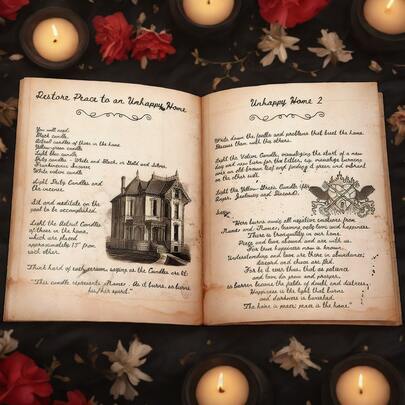 Restore Peace to an Unhappy Home
You will need:
Black candle.
Astral candles of those in the home.
Yellow-green candle
Light blue candle
Deity candles - White and Black, or Gold and Silver.
Frankincense Incense
White votive candle
Light Deity Candles and
the incense.
Sit and meditate on the
goal to be accomplished.
Light the Astral Candles
of those in the home,
which are placed
approximately 15" from
each other.
Think hard of each person, saying as the Candles are lit:
"This candle represents (Name). As it burns, so burns
his/her spirit."
Unhappy Home 2
Write down the faults and problems that beset the home.
Discuss them with the others.
Light the Votive Candle, visualizing the start of a new
day and new
on the other wall.
Light the Yellow-Green Candle
Anger, Jealousy and Discord).
Say:
burns away all negative emotions from
(Name) and (Name), leaving only love and happiness.
There is tranquility in our home.
Peace and love abound and are with us.
For true happiness now is known.
Understanding and love are there in abundance;
discord and chaos are fled.
For be it ever thus, that as patience
and love do grow and prosper,
so barren become the fields of doubt and distress.
Happiness is the light that burns
and darkness is banished.
The home is peace; peace is the home."